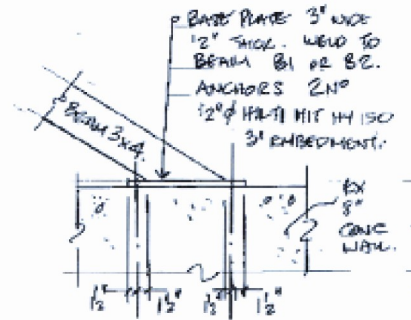 BASE PLATE 3" WIDE
1/2" THICK. WELD TO
BEAM B1 OR B2.
ANCHORS 2Nº
1/2" φ HILTI HIT HY 150
3" EMBEDMENT.
BEAM 3x4.
EX
8"
CONC
WALL.
1½" 1½" 1½" 1½"